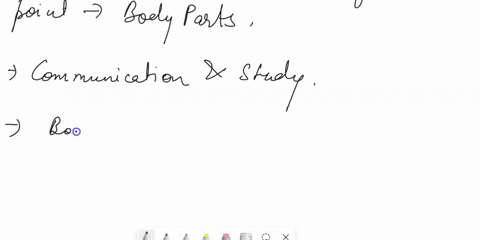 point → Body Parts.
→ Communication & Study.
→ Bo